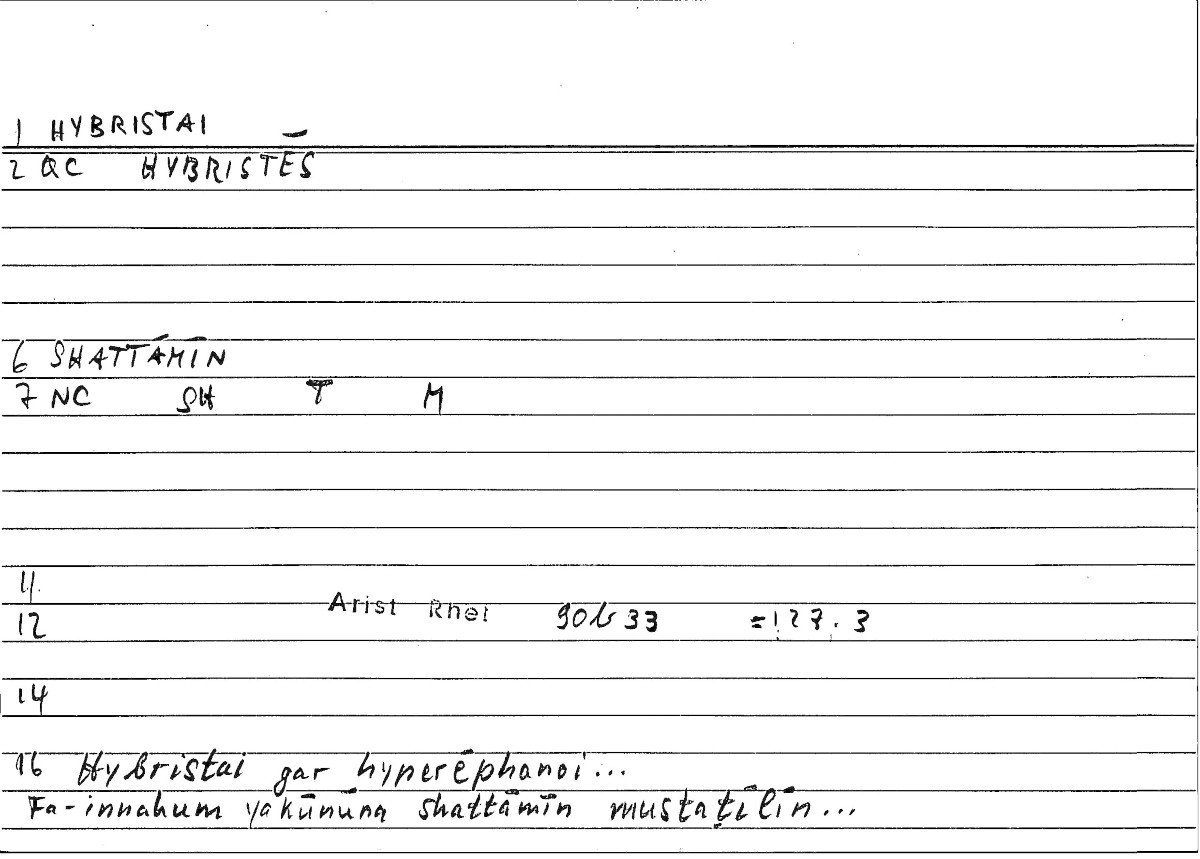 1 HYBRISTAI
2 QC HYBRISTĒS
6 SHATTĀMĪN
7 NC SH T M
11
12 Arist Rhet 90b33 =127.3
14
16 Hybristai gar hyperēphanoi...
Fa-innahum yakūnūna shattāmīn mustaṭīlīn...